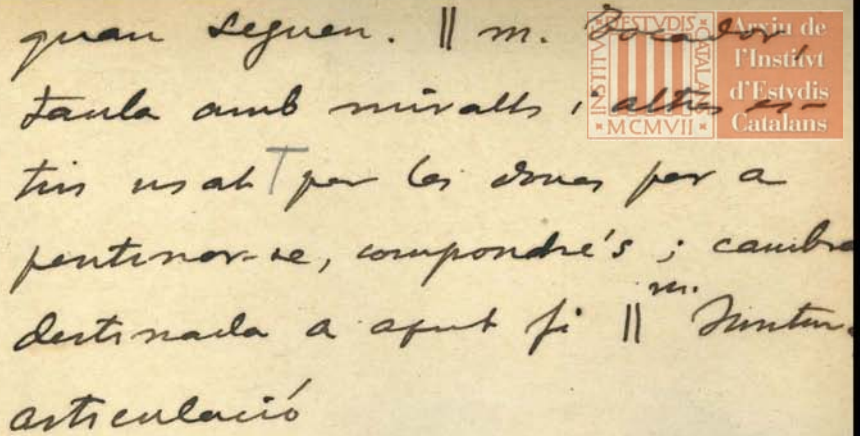 quan seguen. || m. Tocador,
taula amb miralls i altres es-
tris usats per les dones per a
pentinar-se, compondre's; cambra
destinada a aquest fi || m. Juntura
articulació
INSTITVT D'ESTVDIS CATALANS
MCMVII
Arxiu de
l'Institvt
d'Estvdis
Catalans